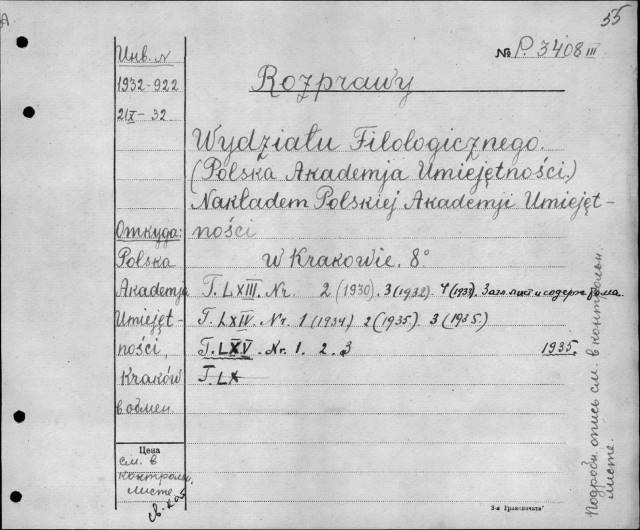 55
№ P. 3408 III
Инв. №
1932-922
21/X - 32
Rozprawy
Wydziału Filologicznego.
(Polska Akademja Umiejętności.)
Nakładem Polskiej Akademji Umiejęt-
ności
w Krakowie. 8°
Откуда:
Polska
Akademja
Umiejęt-
ności,
Kraków
в обмен.
T. LXIII. Nr. 2 (1930). 3 (1932). 4 (1933). Загл. лист и содерж. тома.
T. LXIV. Nr. 1 (1934) 2 (1935). 3 (1935.)
T. LXV. Nr. 1. 2. 3 1935.
T. LX
Цена
см. в
контрольн.
листе
Подробн. опись см. в контрольн.
листе.
3-я Графпечать"